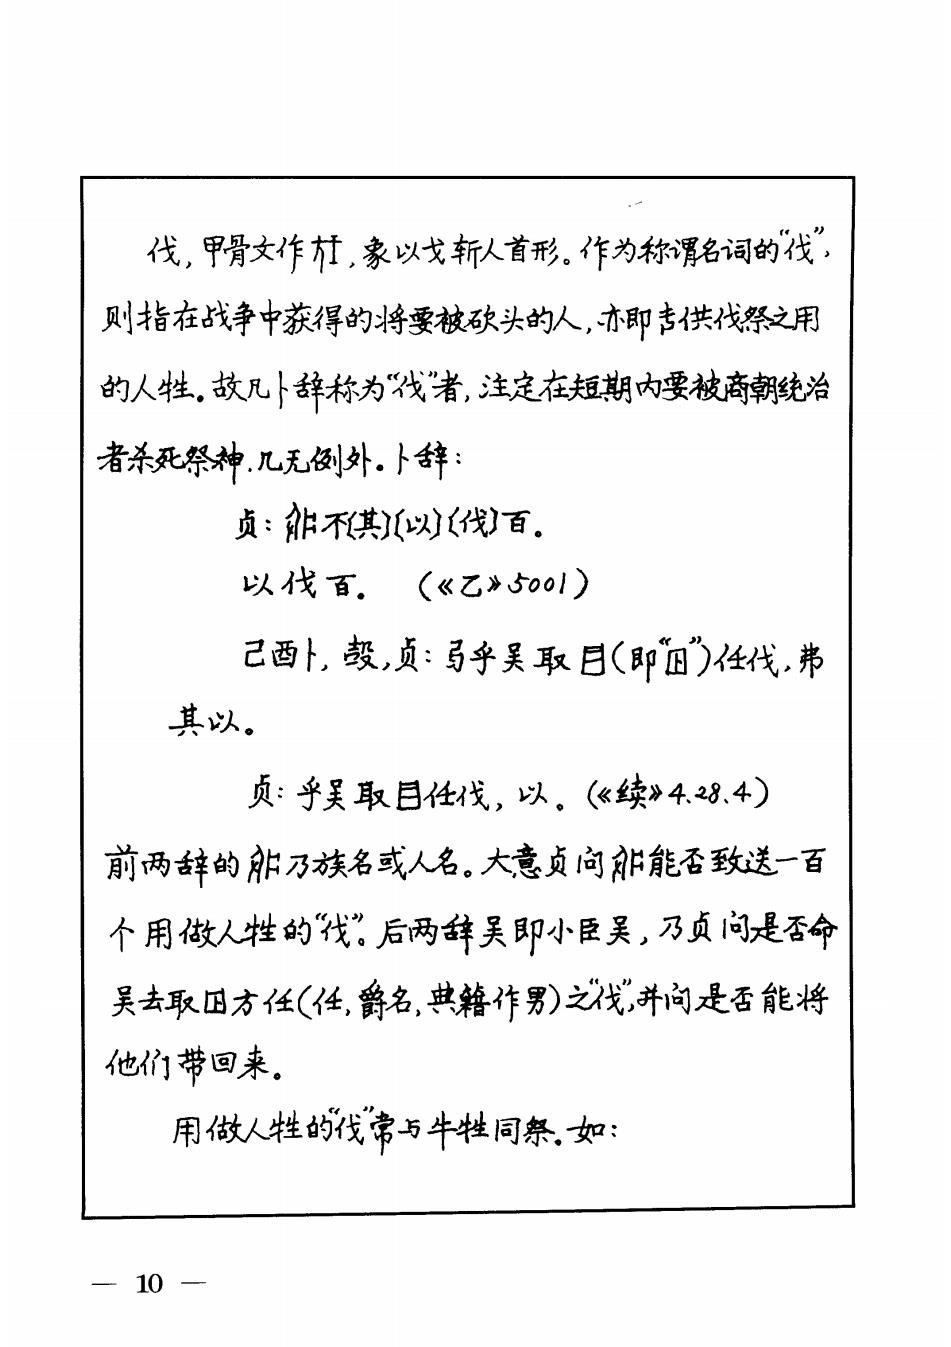 伐,甲骨文作,象以戈斩人首形。作为称谓名词的“伐”,
则指在战争中获得的将要被砍头的人,亦即专供伐祭之用
的人牲。故凡卜辞称为“伐”者,注定在短期内要被商朝统治
者杀死祭神.几无例外。卜辞:
贞:不〔其〕〔以〕〔伐〕百.
以伐百. (《乙》5001)
己酉卜,㱿,贞:弓乎吴取(即“”)任伐,弗
其以。
贞:乎吴取任伐,以。(《续》4.28.4)
前两辞的乃族名或人名。大意贞问能否致送一百
个用做人牲的“伐”。后两辞吴即小臣吴,乃贞问是否命
吴去取方任(任,爵名,典籍作男)之“伐”,并问是否能将
他们带回来。
用做人牲的“伐”常与牛牲同祭.如:
— 10 —